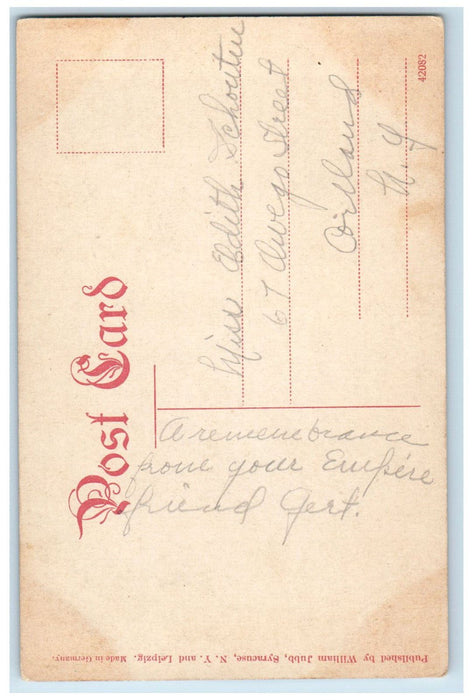 Post Card
42082
Miss Edith Schouten
67 Owego Street
Cortland
N. Y
A remembrance
from your Empire
friend Gert.
Published by William Jubb, Syracuse, N. Y. and Leipzig. Made in Germany.